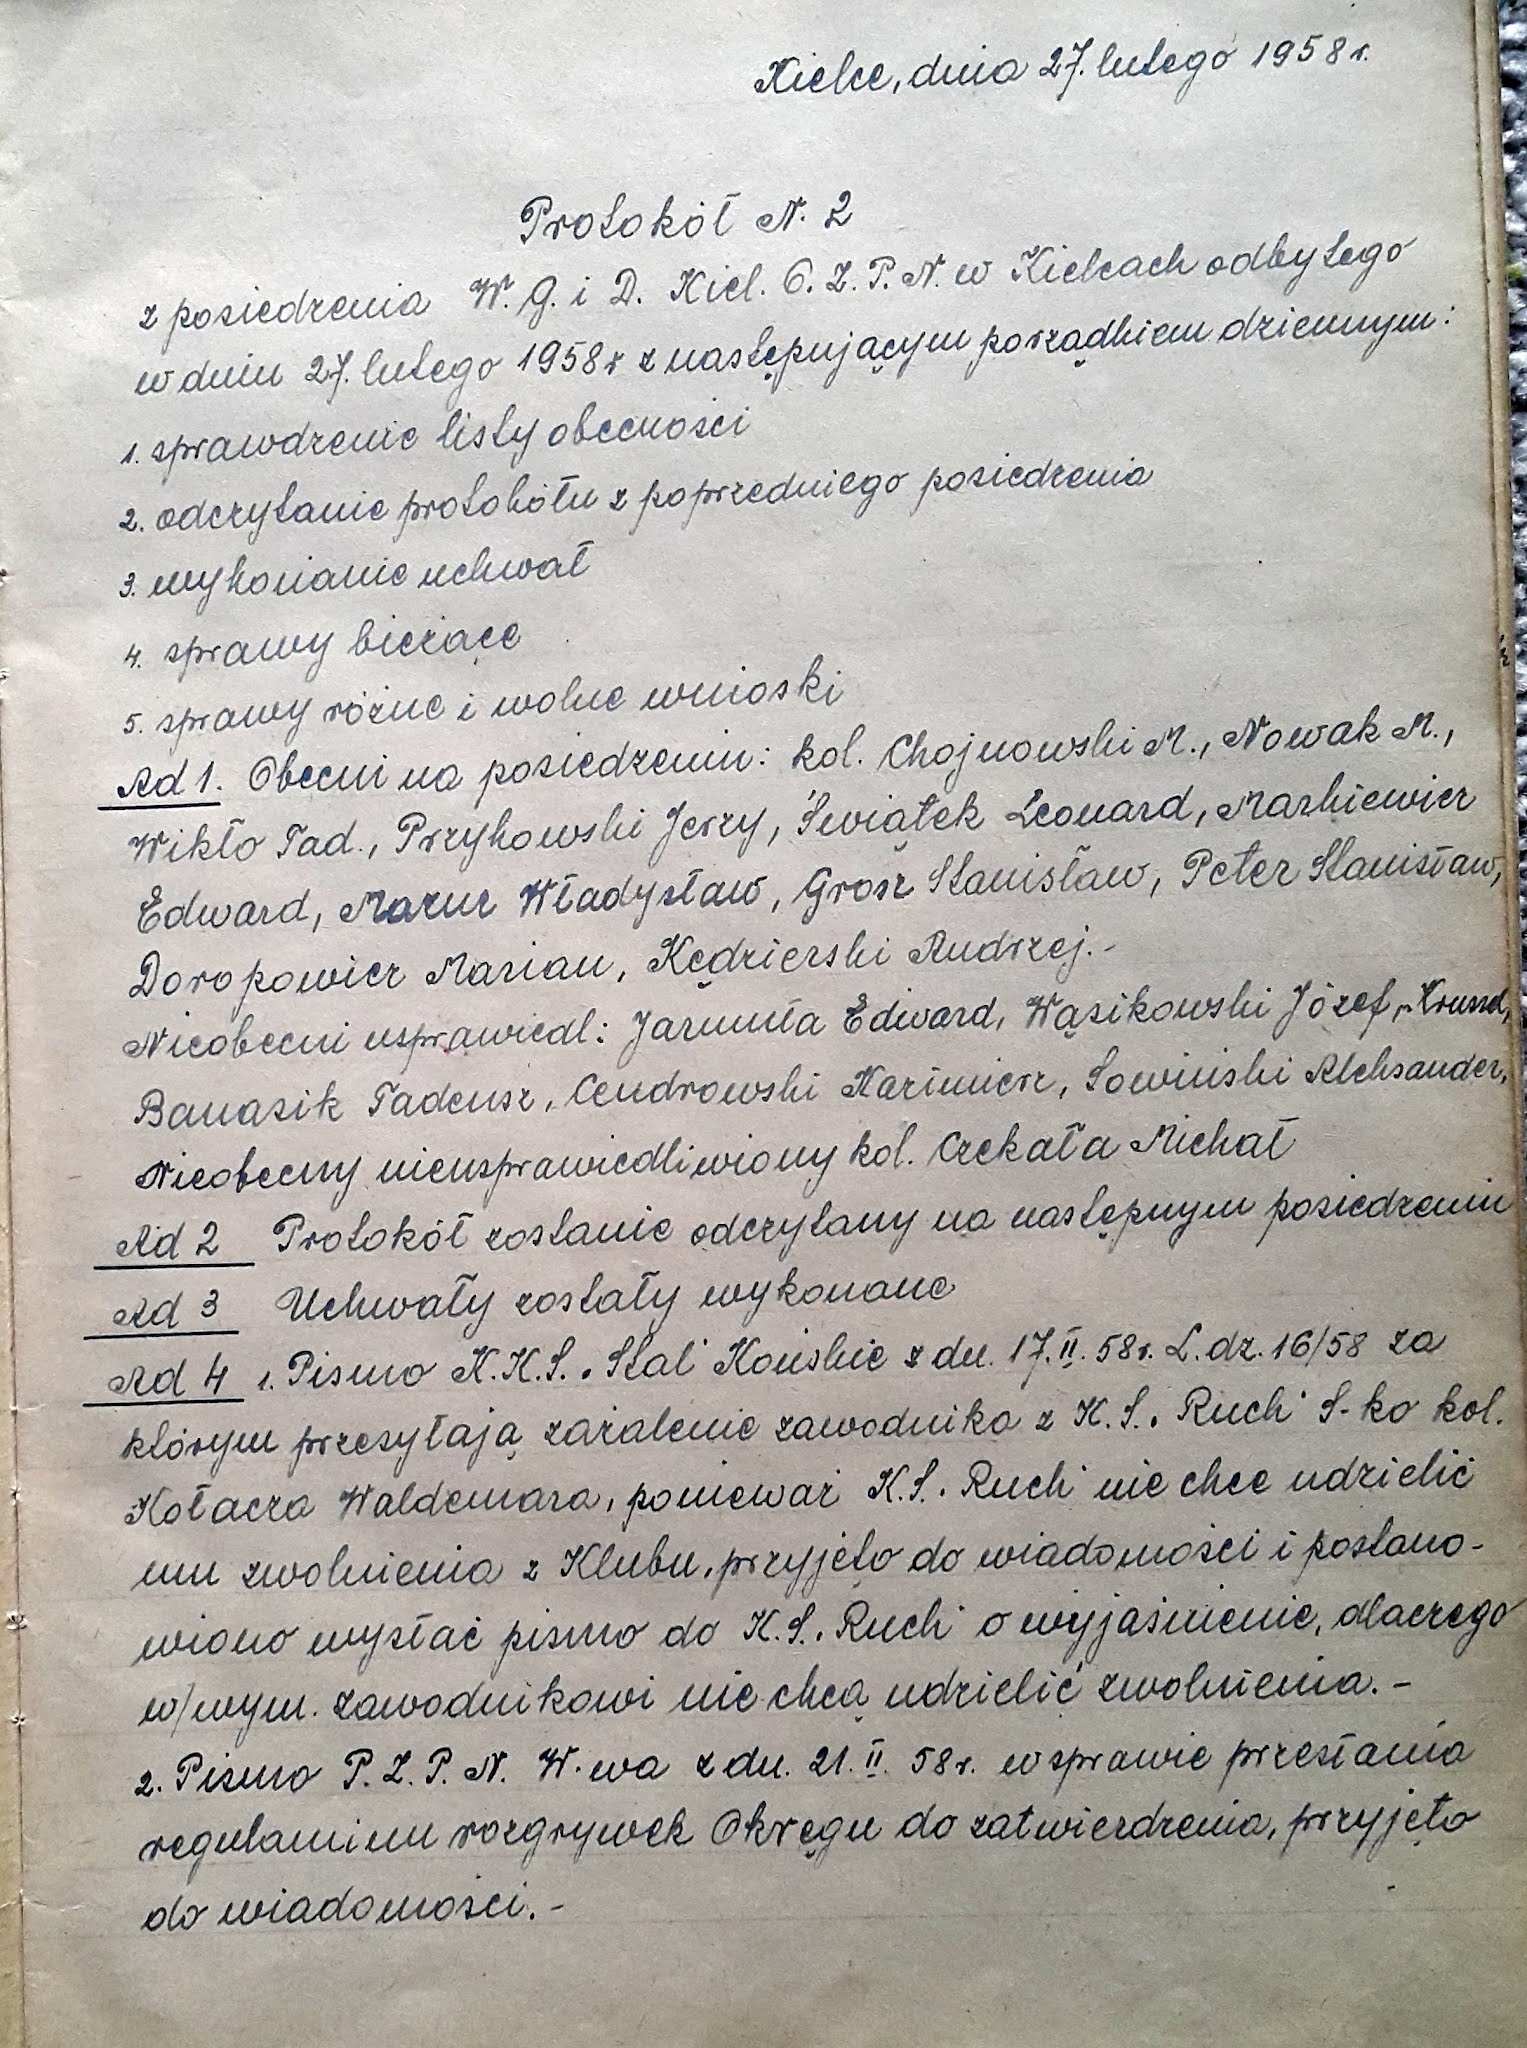 Kielce, dnia 27. lutego 1958 r.
Protokół N. 2
z posiedzenia W. G. i D. Kiel. O. Z. P. N. w Kielcach odbytego
w dniu 27. lutego 1958 r z następującym porządkiem dziennym:
1. sprawdzenie listy obecności
2. odczytanie protokółu z poprzedniego posiedzenia
3. wykonanie uchwał
4. sprawy bieżące
5. sprawy różne i wolne wnioski
Ad 1. Obecni na posiedzeniu: kol. Chojnowski M., Nowak M.,
Wikło Tad., Przykowski Jerzy, Świątek Leonard, Markiewicz
Edward, Mazur Władysław, Grosz Stanisław, Peter Stanisław,
Doropowicz Marian, Kędzierski Andrzej.-
Nieobecni usprawiedl: Jarmuła Edward, Wąsikowski Józef,
Banasik Tadeusz, Cendrowski Kazimierz, Sowiński Aleksander,
Nieobecny nieusprawiedliwiony kol. Czekała Michał
Ad 2 Protokół zostanie odczytany na następnym posiedzeniu
Ad 3 Uchwały zostały wykonane
Ad 4 1. Pismo K.K.S. „Stal" Końskie z dn. 17.II.58r. L.dz. 16/58 za
którym przesyłają zażalenie zawodnika z K.S. „Ruch" S-ko kol.
Kołacza Waldemara, ponieważ K.S. „Ruch" nie chce udzielić
mu zwolnienia z Klubu, przyjęto do wiadomości i postano-
wiono wysłać pismo do K.S. „Ruch" o wyjaśnienie, dlaczego
w/wym. zawodnikowi nie chcą udzielić zwolnienia.-
2. Pismo P. Z. P. N. W-wa z dn. 21. II. 58r. w sprawie przesłania
regulaminu rozgrywek Okręgu do zatwierdzenia, przyjęto
do wiadomości.-